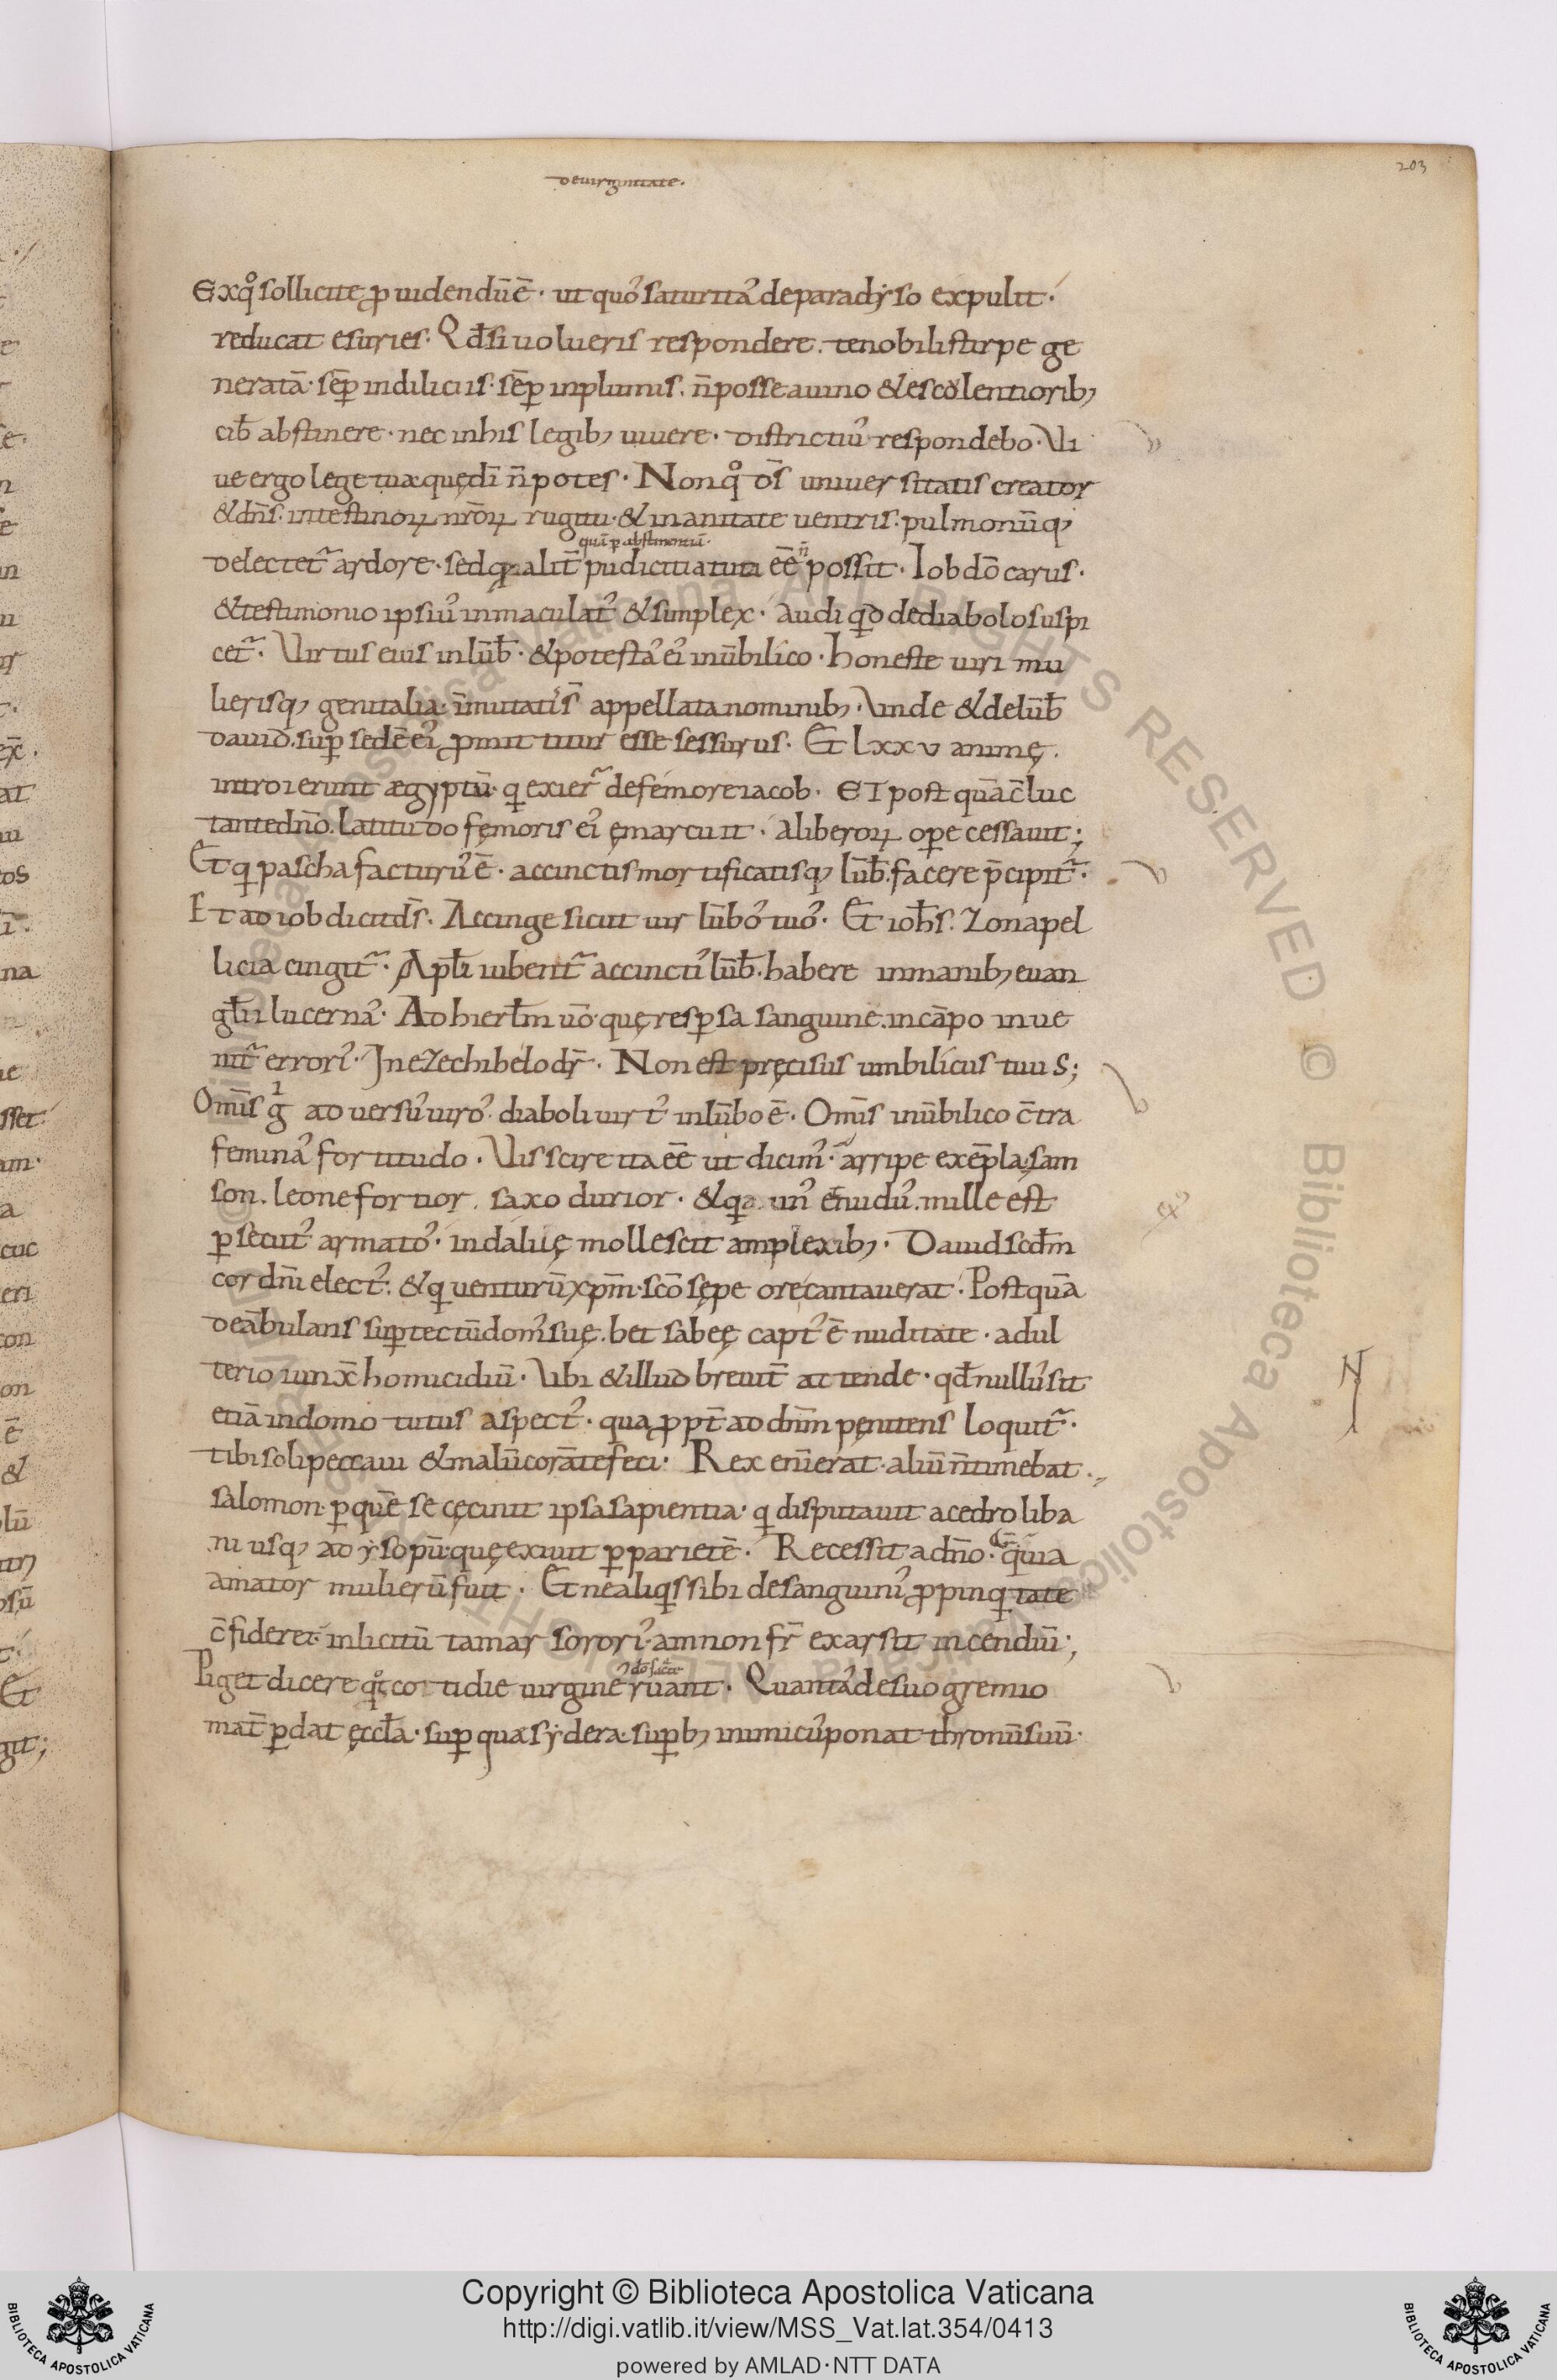 203
de uirginitate.
Ex qͦ sollicite ꝓuidendū ē · ut quoſ saturitaſ de paradẏso expulit ·
reducat esuries · Qđ si uolueris respondere · te nobili stirpe ge
neratā · sēp in diliciis · sēp in plumis · n̄ posse a uino & escolentiorib;
cib̄ abstinere · nec in his legib; uiuere · districtiuſ respondebo · Ui
ue ergo lege tua quę dī n̄ potes · Non qͦ dſ̄ uniuersitatis creator
& dn̄s · intestinoꝝ nr̄oꝝ rugitu · & inanitate uentris · pulmonūq;
quā ꝑ abstinentiā ·
delectet᷑ ardore · sed qa alit̄ pudicitia tuta eē n̄ possit · Iob dō carus ·
& testimonio ipsiuſ inmaculat᷒ & simplex · audi qd de diabolo suspi
cet᷑ · Uirtus eius in lūb̄ · & potestaſ eiſ in ūbilico · honeste uiri mu
lierisq; genitalia · īmutatis s̄ appellata nominib; · Unde & de lūb̄
dauid · suꝑ sedē eiſ ꝓmittitur esse sessurus · Et lxxv animę ·
introierunt ægyptū · q exier᷑ de femore iacob · ET post quā c̄luc
tante dn̄o · latitudo femoris eiſ ęmarcuit · a liberoꝝ oꝑe cessauit;
Et q pascha facturuſ ē · accinctis mortificatisq; lūb̄ · facere p̄cipit᷑ ·
Et ad iob dicit dſ̄ · Accinge sicut uir lūboſ tuoſ · Et ioh̄s · Zona pel
licia cingit᷑ · Apłi iubent᷑ accincti lūb̄ · habere in manib; euan
głii lucernaſ · Ad hierłm uō · quę resꝑsa sanguine · in cāpo inue
nit᷑ erroriſ · In ezechihelo dr̄ · Non est pręcisus umbilicus tuus;
Omīs g̍ aduersuſ uiroſ · diaboli uirt᷒ in lūbo ē · Omīs in ūbilico c̄tra
feminaſ fortitudo · Uis scire ita eē ut dicim᷒ · arripe exēpla · sam
son · leone fortior · saxo durior · & qa un᷒ & nuduſ · mille est
ꝑsecut᷒ armatoſ · in dalilę mollescit amplexib; · Dauid scđm
cor dn̄i elect᷒ · & q uenturū xp̄m · scō sępe ore cantauerat · Postquā
deābulans suꝑ tectū dom᷒ suę · bet sabeę capt᷒ ē nuditate · adul
terio iunx̄ homicidiū · Ubi & illud breuit̄ attende · qđ nulluſ sit
etiā in domo tutus aspect᷒ · qua ꝓpt̄ ad dn̄m pęnitens loquit᷑ ·
tibi soli peccaui & malū corā te feci · Rex en̄ erat · aliū n̄ timebat ·
salomon · ꝑ quē se cęcinit ipsa sapientia · q disputauit a cedro liba
ni usq; ad ẏsopū · quę exiuit ꝑ parietē · Recessit a dn̄o · quia
amator mulierū fuit · Et ne aliqs sibi de sanguiniſ ꝓpinqitate
c̄fideret · in licitū tamar sororiſ · amnon fr̄ exarsit incendiū;
Piget dicere qt cottidie uirgineſ ruant · Quantaſ de suo gremio
mat̄ ꝑdat ęccła · suꝑ quæ sẏdera · suꝑb; inimicuſ ponat thronū suū ·
Copyright © Biblioteca Apostolica Vaticana
http://digi.vatlib.it/view/MSS_Vat.lat.354/0413
powered by AMLAD·NTT DATA
BIBLIOTECA APOSTOLICA VATICANA
BIBLIOTECA APOSTOLICA VATICANA